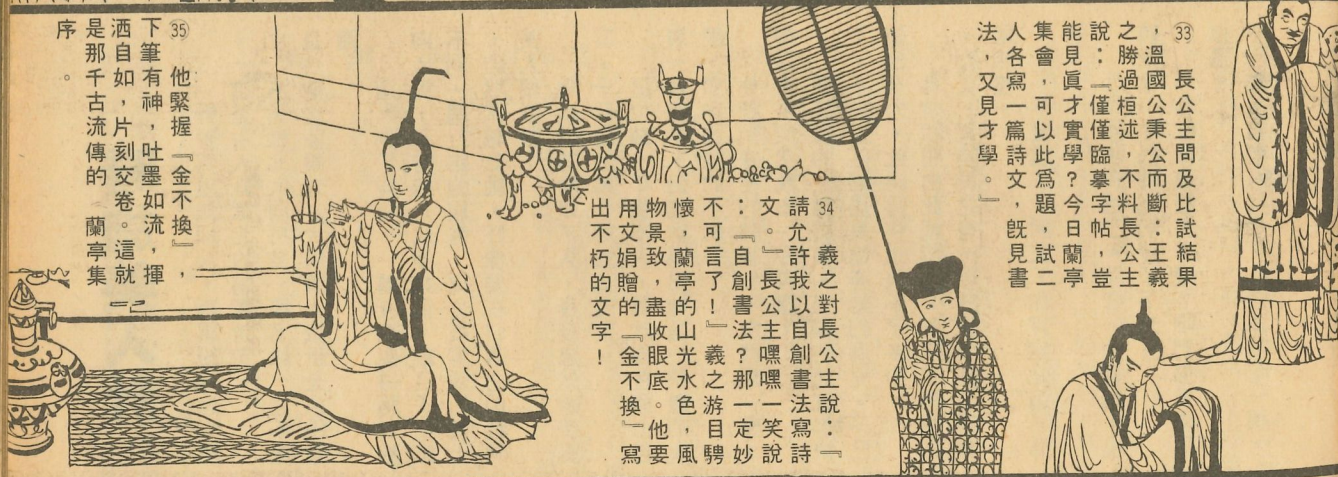 ㉝　長公主問及比試結果
，溫國公秉公而斷：王羲
之勝過桓述，不料長公主
說：『僅僅臨摹字帖，豈
能見眞才實學？今日蘭亭
集會，可以此爲題，試二
人各寫一篇詩文，旣見書
法，又見才學。』
㉞　羲之對長公主說：『
請允許我以自創書法寫詩
文。』長公主嘿嘿一笑說
：『自創書法？那一定妙
不可言了！』羲之游目騁
懷，蘭亭的山光水色，風
物景致，盡收眼底。他要
用文娟贈的『金不換』寫
出不朽的文字！
㉟　他緊握『金不換』，
下筆有神，吐墨如流，揮
洒自如，片刻交卷。這就
是那千古流傳的　蘭亭集
序　。